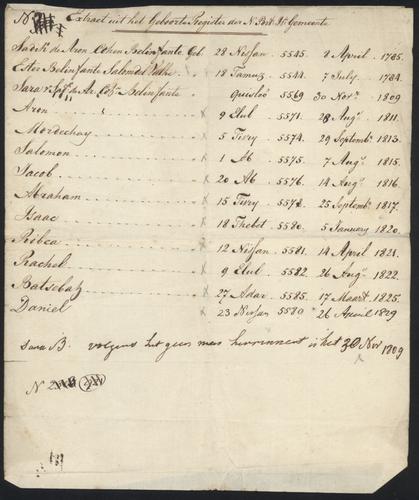 Extract uit het Geboorte Register der N. Port. Isr. Gemeente
Sadik de Aron Cohen Belinfante Geb. 28 Nissan 5545. 8 April 1785.
Ester Belinfante 18 Tamuz 5544. 7 July 1784.
Sara Belinfante Quisleu 5569 30 Nov. 1809
Aron 9 Elul 5571. 28 Augs. 1811.
Mordechay 5 Tisry 5574. 29 Septembr. 1813.
Salomon 1 Ab 5575. 7 Augs. 1815.
Jacob 20 Ab 5576. 14 Augs. 1816.
Abraham 15 Tisry 5578. 25 Septembr. 1817.
Isaac 18 Thebet 5580. 5 January 1820.
Ribca 12 Nissan 5581. 14 April 1821.
Rachel 9 Elul 5582. 26 Augs. 1822.
Batsebah 27 Adar 5585. 17 Maart 1825.
Daniel 23 Nissan 5580 26 April 1829
Sara B. volgens het geen men herrinnert is het 30 Nov 1809
N